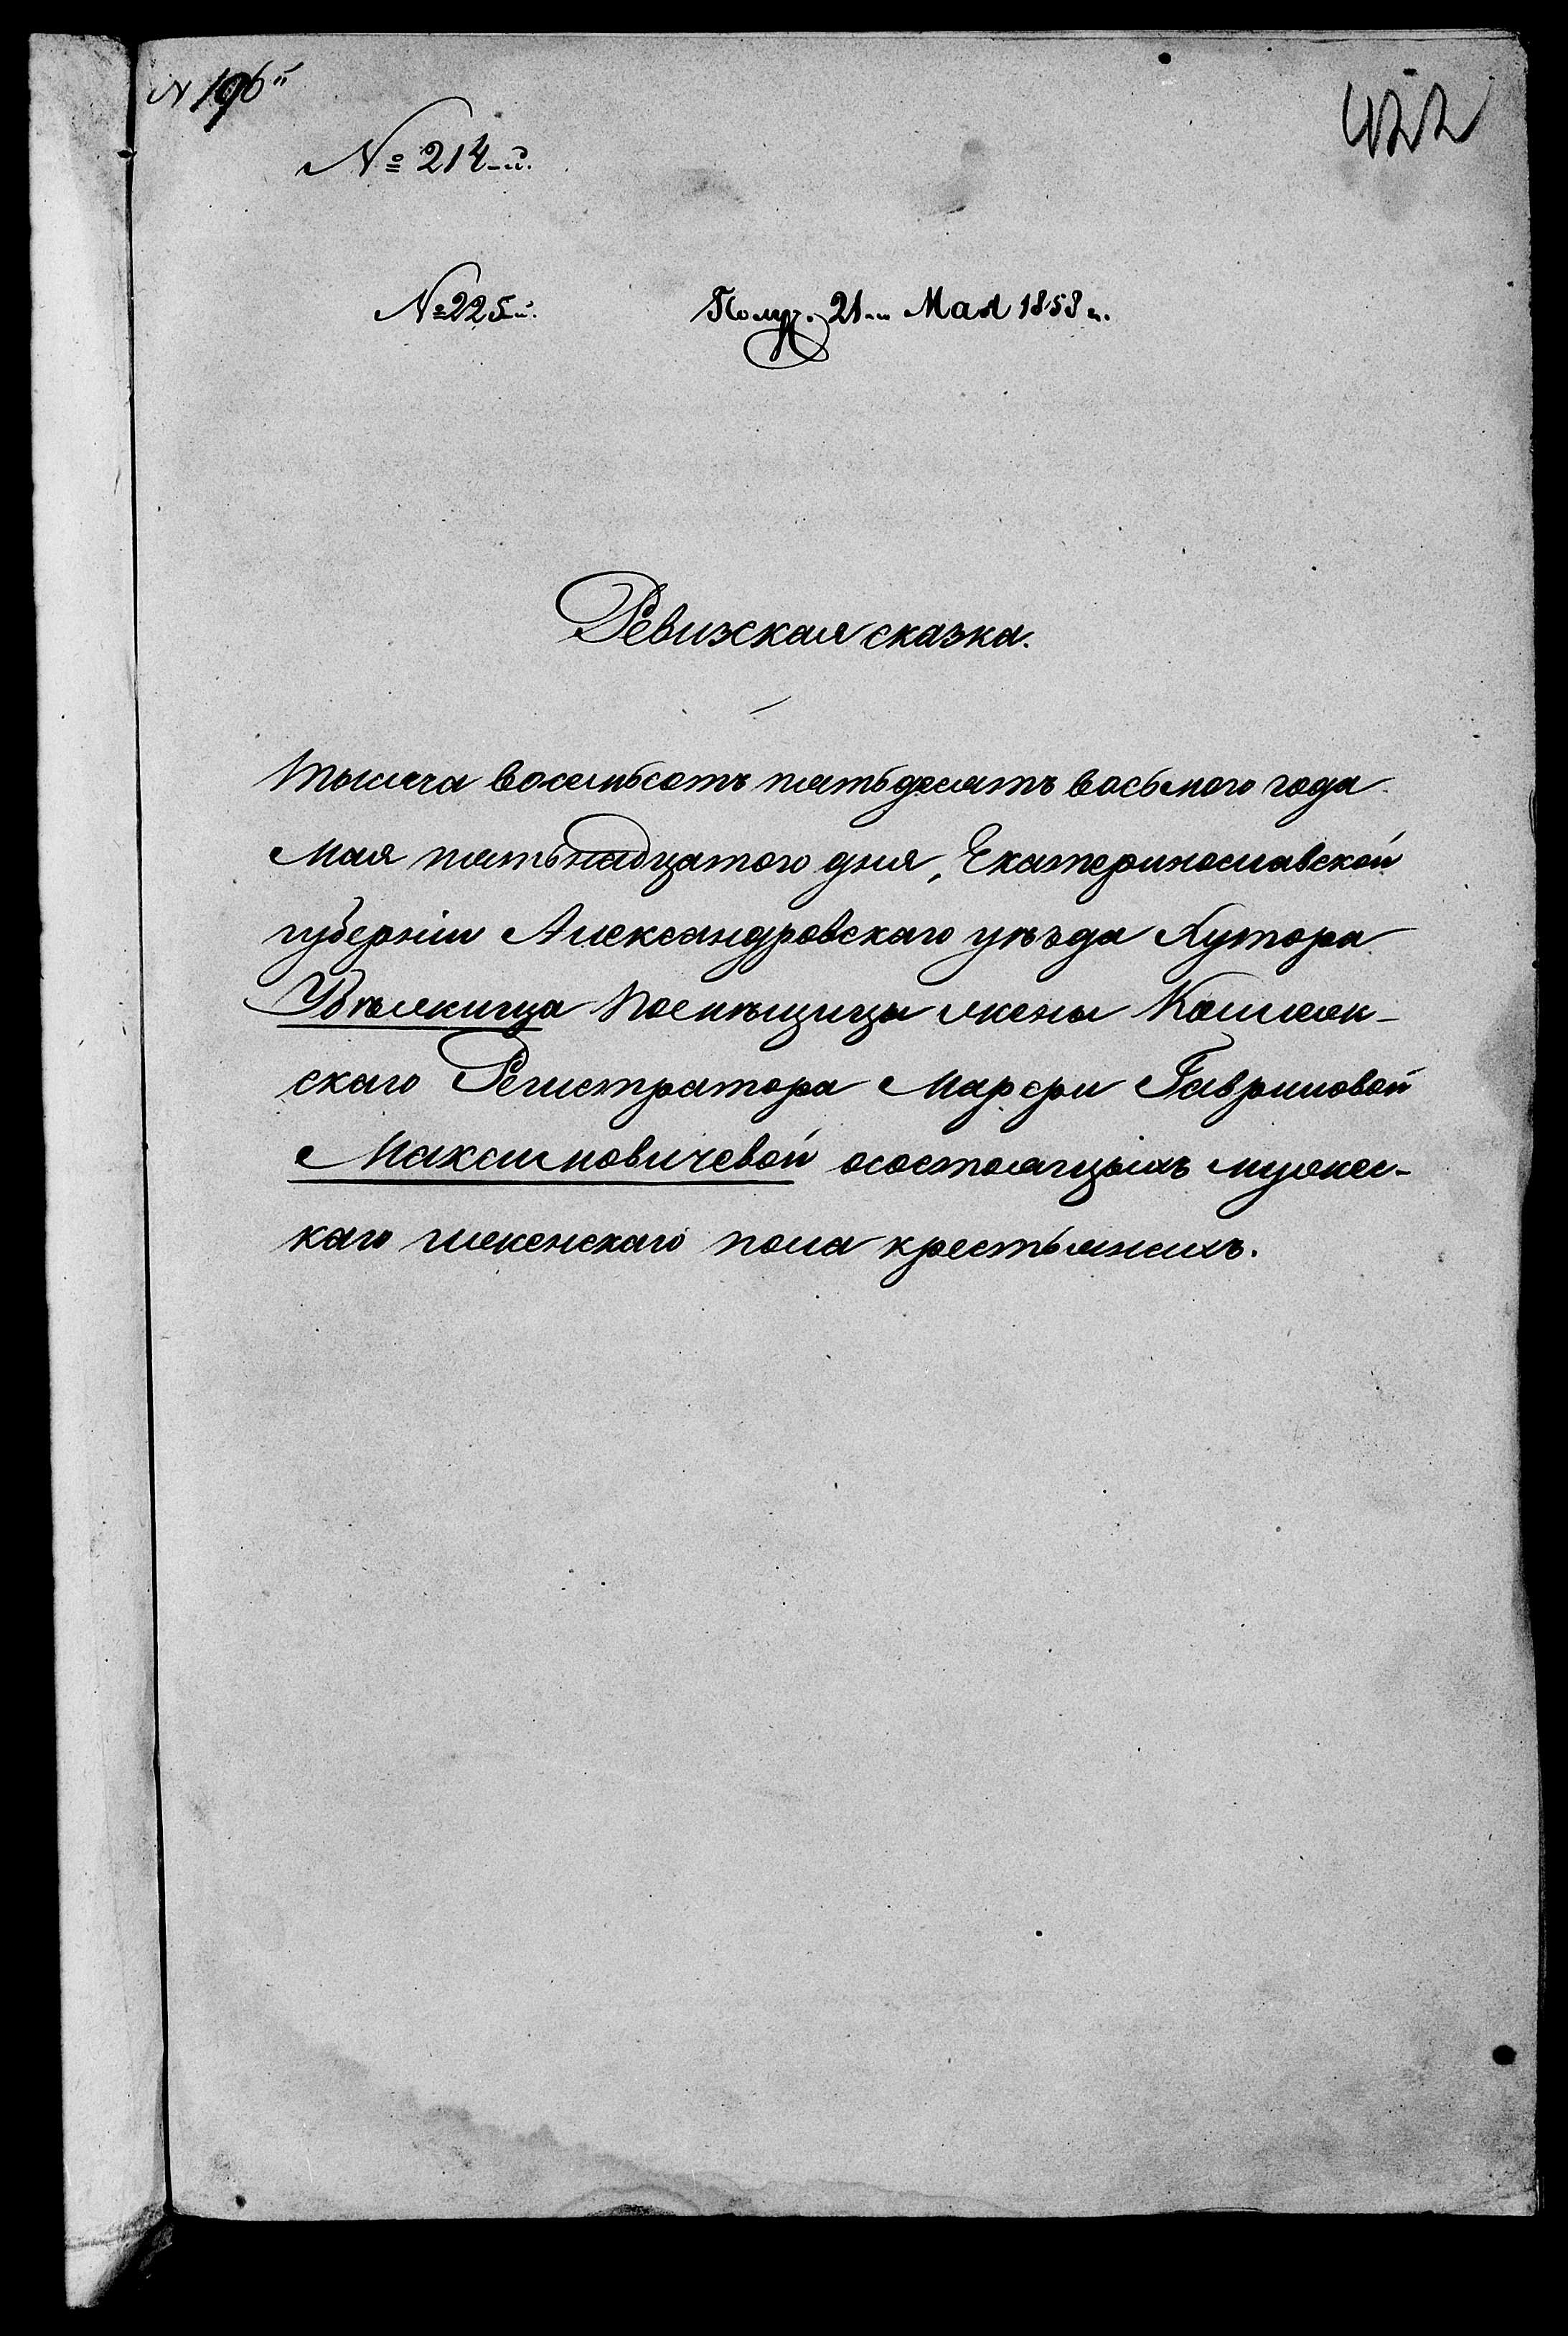 N 196й
422
№ 214-й.
№ 225й. Получ. 21го Мая 1858 г.
Ревизская сказка.
Тысяча восемьсотъ пятьдесятъ восьмого года
Мая пятьнадцатого дня, Екатеринославской
губерніи Александровскаго уѣзда Хутора
Помѣщицы жены Коллеж-
скаго Регистратора Марѳи Гавриловой
Максимовичевой осостоящихъ мужес-
каго иженскаго пола крестьянахъ.